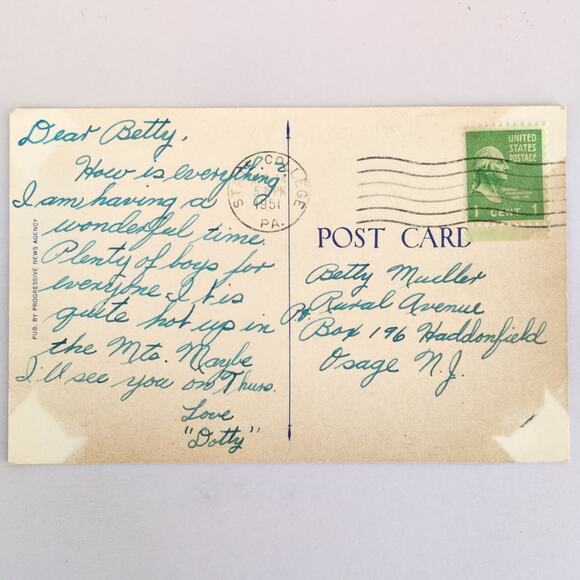 Dear Betty,
How is everything?
I am having a
wonderful time.
Plenty of boys for
everyone. It is
quite hot up in
the Mts. Maybe
I'll see you on Thurs.
Love
"Dotty"
PUB. BY PROGRESSIVE NEWS AGENCY
STATE COLLEGE
1951
PA.
UNITED
STATES
POSTAGE
1 CENT 1
POST CARD
Betty Mueller
Rural Avenue
Box 196 Haddonfield
Osage N.J.